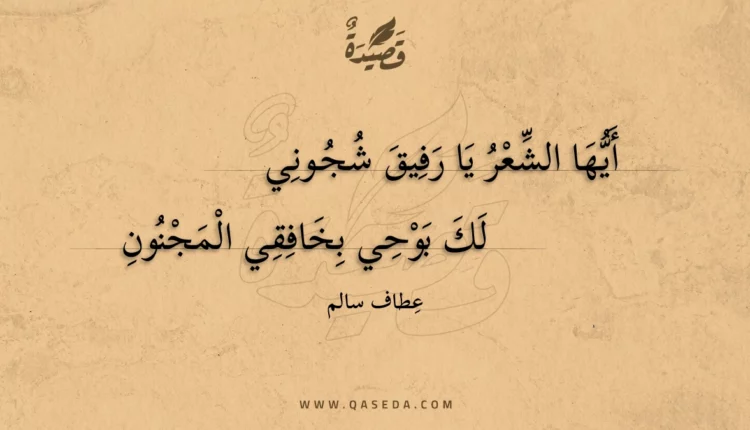 قَصِيْدَةٌ
أَيُّهَا الشِّعْرُ يَا رَفِيقَ شُجُونِي
لَكَ بَوْحِي بِخَافِقِي الْمَجْنُونِ
عِطاف سالم
WWW.QASEDA.COM